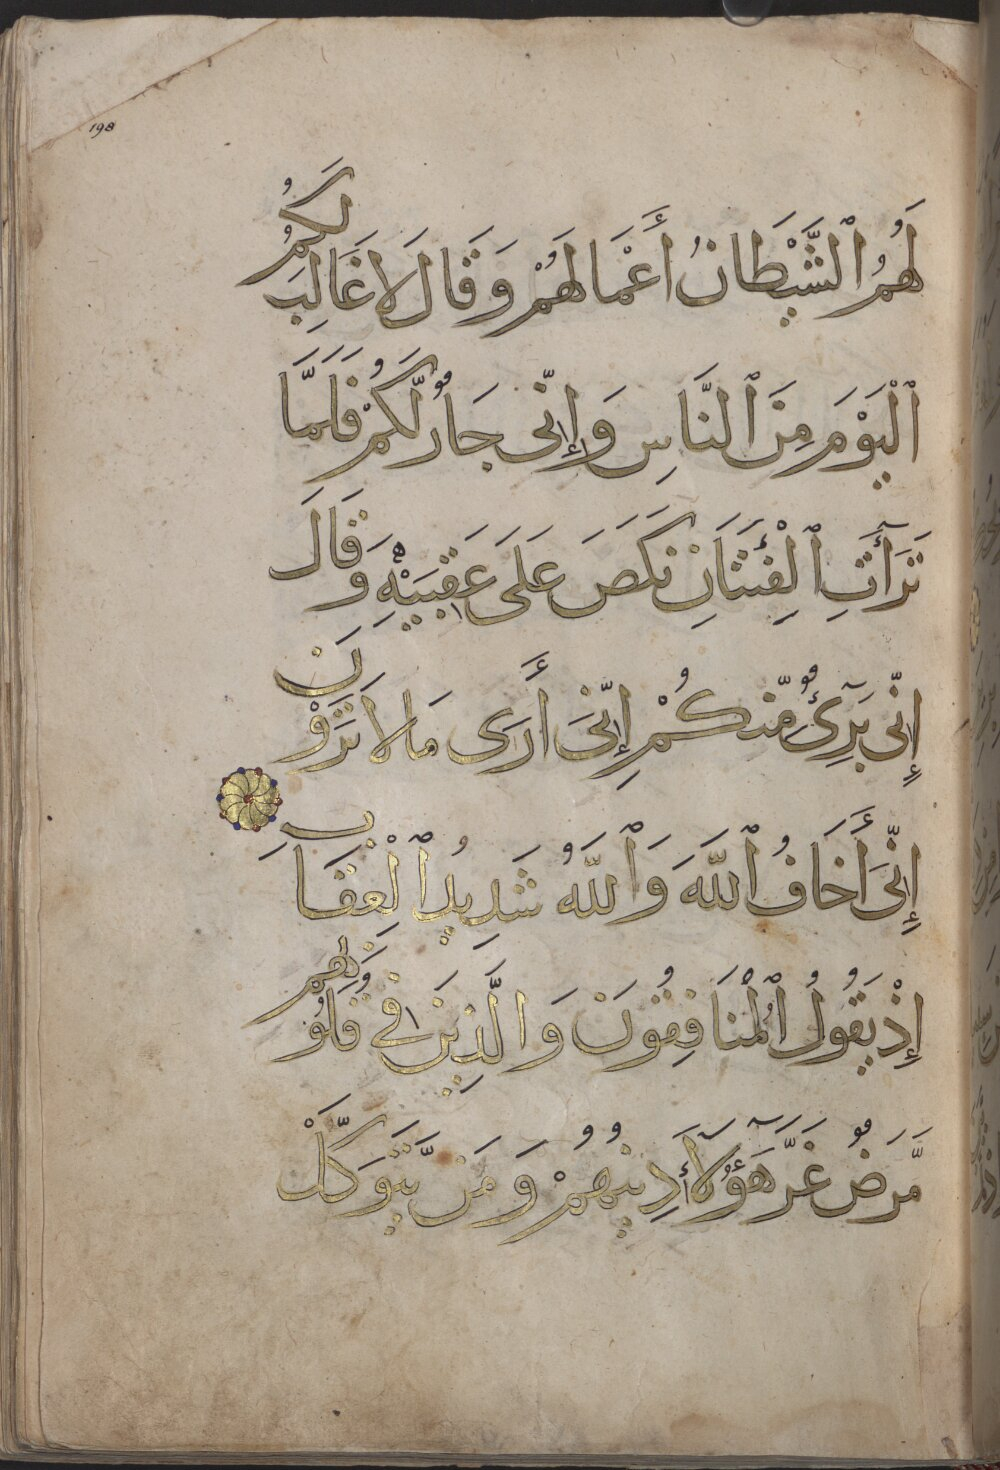 198
لَهُمُ ٱلشَّيْطَانُ أَعْمَالَهُمْ وَقَالَ لَا غَالِبَ لَكُمُ
ٱلْيَوْمَ مِنَ ٱلنَّاسِ وَإِنِّى جَارٌ لَّكُمْ فَلَمَّا
تَرَآءَتِ ٱلْفِئَتَانِ نَكَصَ عَلَىٰ عَقِبَيْهِ وَقَالَ
إِنِّى بَرِىٓءٌ مِّنكُمْ إِنِّىٓ أَرَى مَا لَا تَرَوْنَ
إِنِّىٓ أَخَافُ ٱللَّهَ وَٱللَّهُ شَدِيدُ ٱلْعِقَابِ
إِذْ يَقُولُ ٱلْمُنَافِقُونَ وَالَّذِينَ فِى قُلُوبِهِم
مَّرَضٌ غَرَّ هَٓؤُلَآءِ دِينُهُمْ وَمَن يَّتَوَكَّلْ